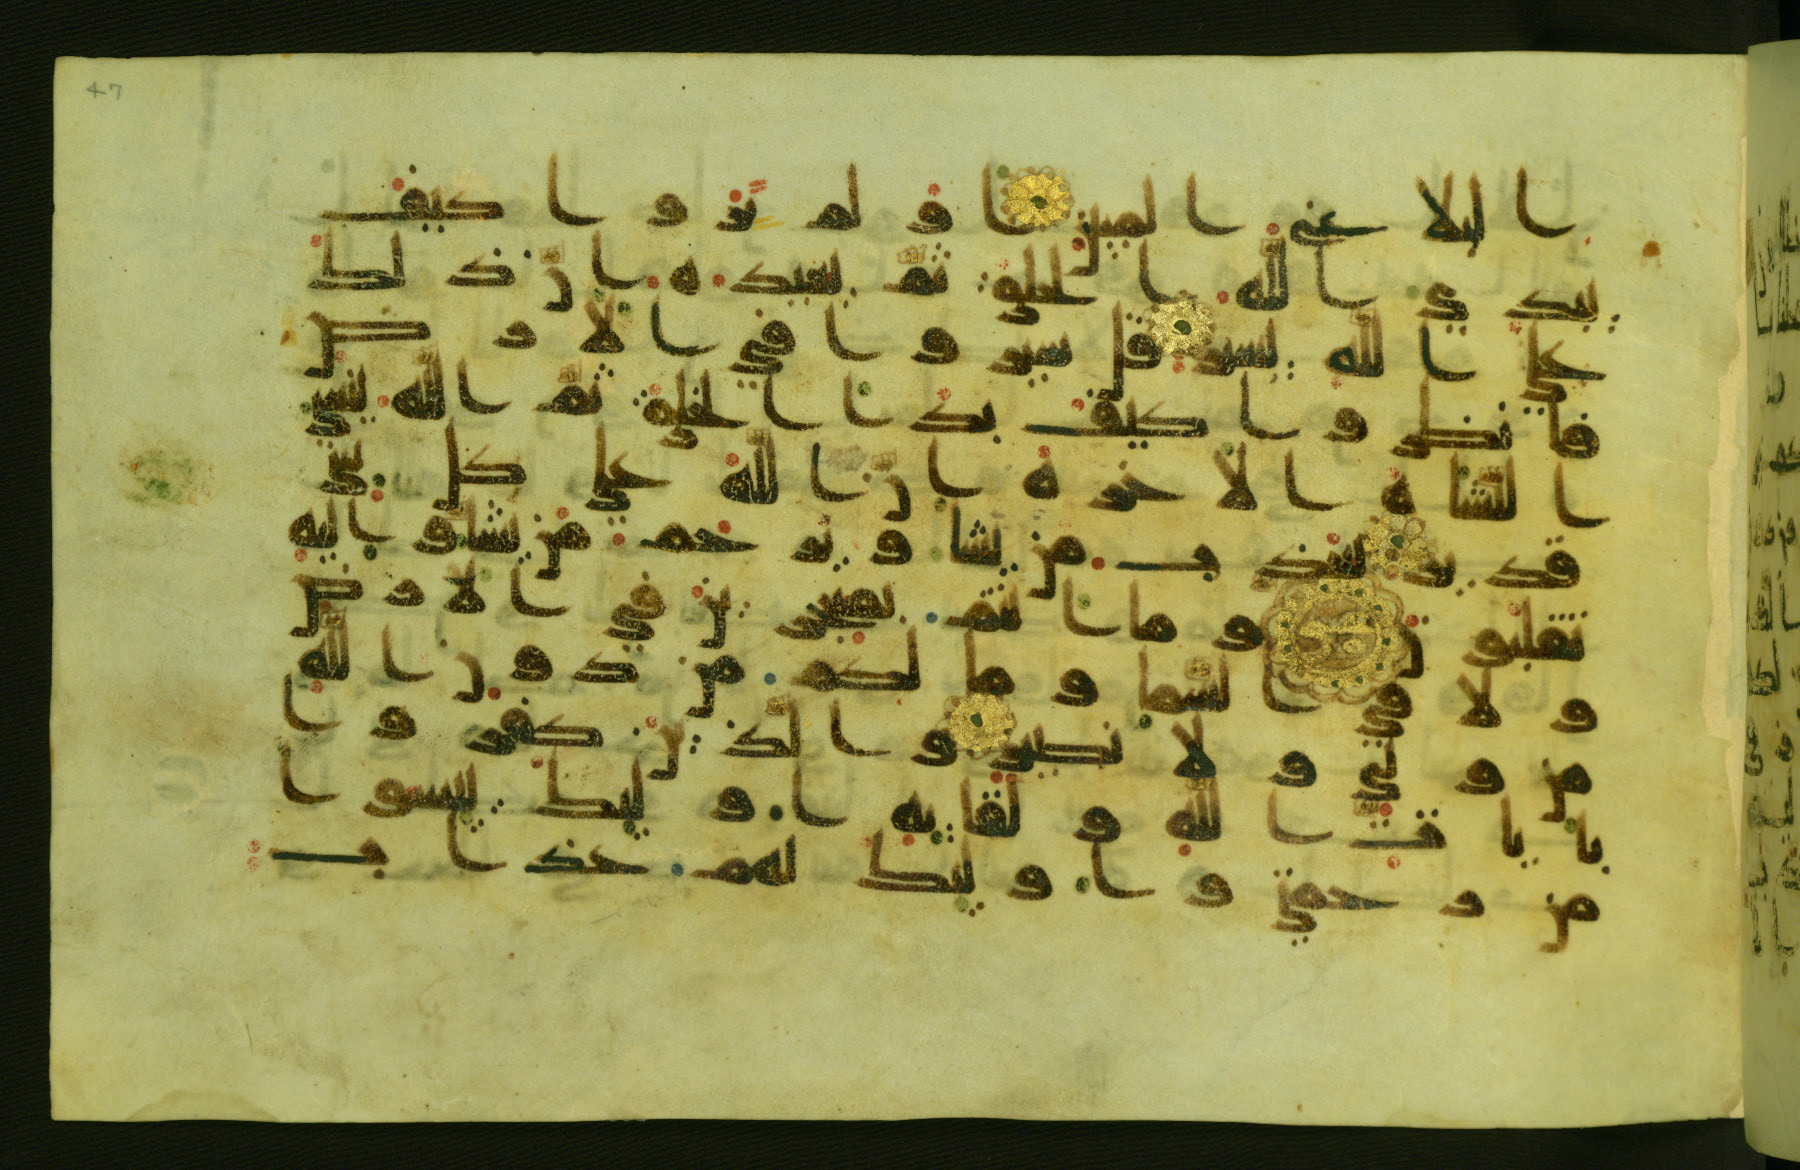 47
الا البلغ المبين اولم يروا كيف
يبدي الله الخلق ثم يعيده ان ذلك
على الله يسير قل سيروا في الارض
فانظروا كيف بدا الخلق ثم الله ينشي
النشاة الاخرة ان الله على كل شي
قدير يعذب من يشا ويرحم من يشا واليه
تقلبون وما انتم بمعجزين في الارض
ولا في السما وما لكم من دون الله
من ولي ولا نصير والذين كفروا
بايت الله ولقايه اوليك ييسوا
من رحمتي واوليك لهم عذاب